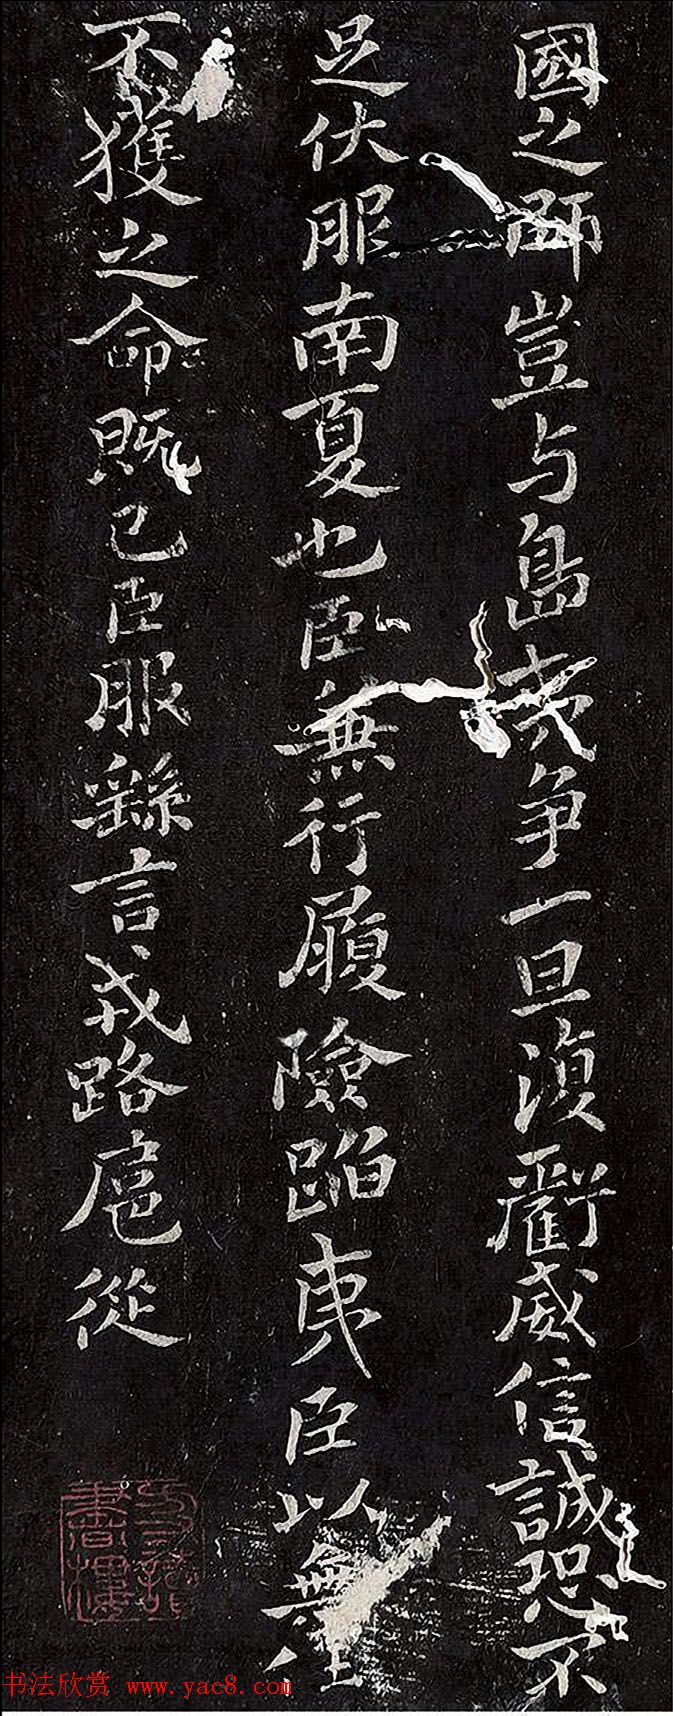 國之師豈与島夷争一旦須爵威信誠恐不
足伏服南夏也臣無行履險蹈夷臣以無任
不獲之命既已臣服繇言戎路扈從
書法欣赏 www.yac8.com